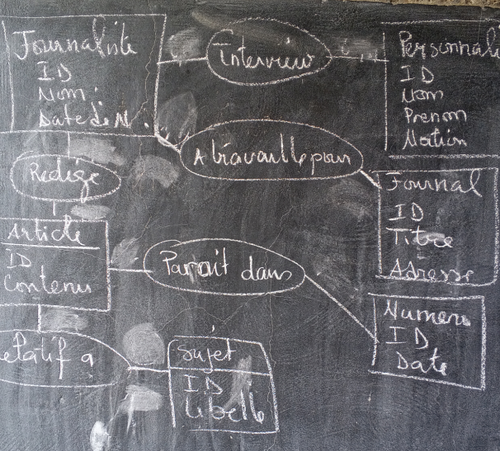 Journaliste
ID
Nom
Date de N.
Interview
Personnali
ID
Nom
Prenom
Nation
A travaille pour
Rédige
Journal
ID
Titre
Adresse
Article
ID
Contenu
Parait dans
Numero
ID
Date
elatif a
Sujet
ID
Libelle